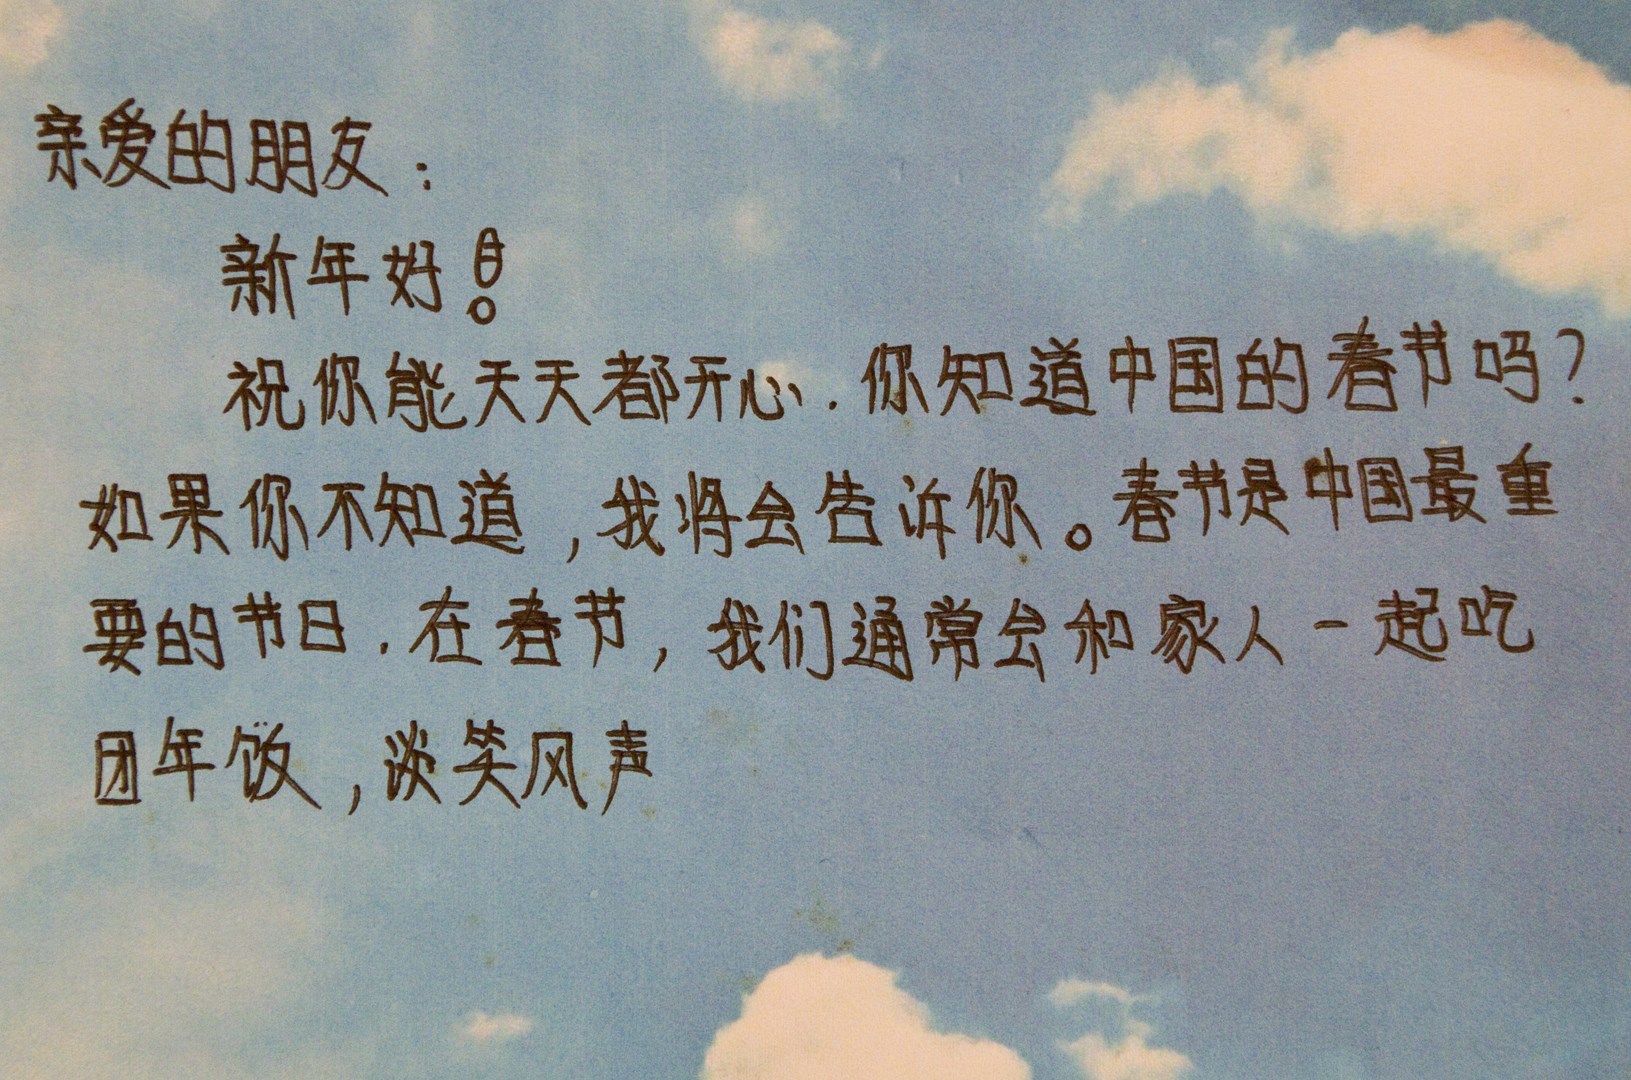 亲爱的朋友：
新年好！
祝你能天天都开心.你知道中国的春节吗？
如果你不知道，我将会告诉你。春节是中国最重
要的节日.在春节，我们通常会和家人一起吃
团年饭，谈笑风声